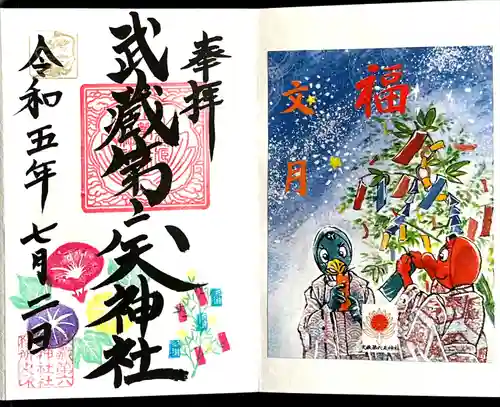 奉拝
武蔵第六天神社
令和五年七月二日
福
文月
武蔵第六天神社